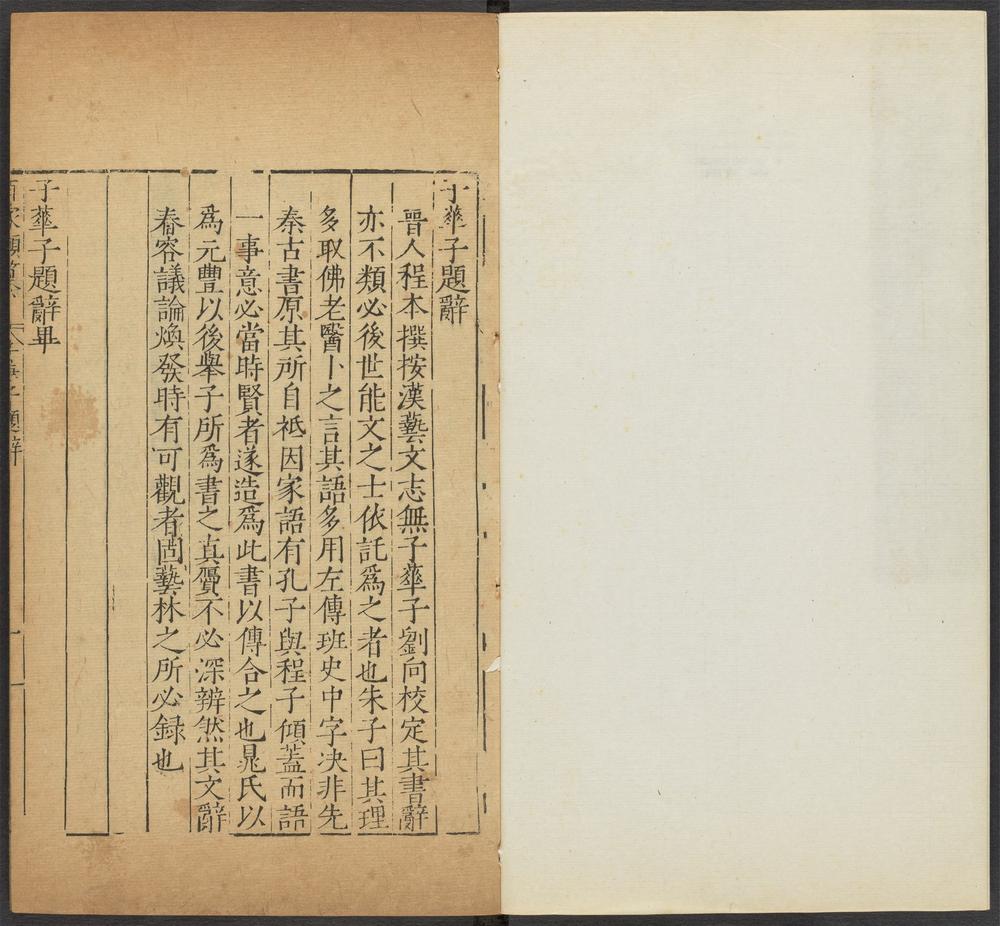 子華子題辭
晉人程本撰按漢藝文志無子華子劉向校定其書辭
亦不類必後世能文之士依託爲之者也朱子曰其理
多取佛老醫卜之言其語多用左傳班史中字决非先
秦古書原其所自祗因家語有孔子與程子傾蓋而語
一事意必當時賢者遂造爲此書以傳合之也晁氏以
爲元豐以後舉子所爲書之真贗不必深辨然其文辭
舂容議論煥發時有可觀者固藝林之所必録也
子華子題辭畢
子華子題辭